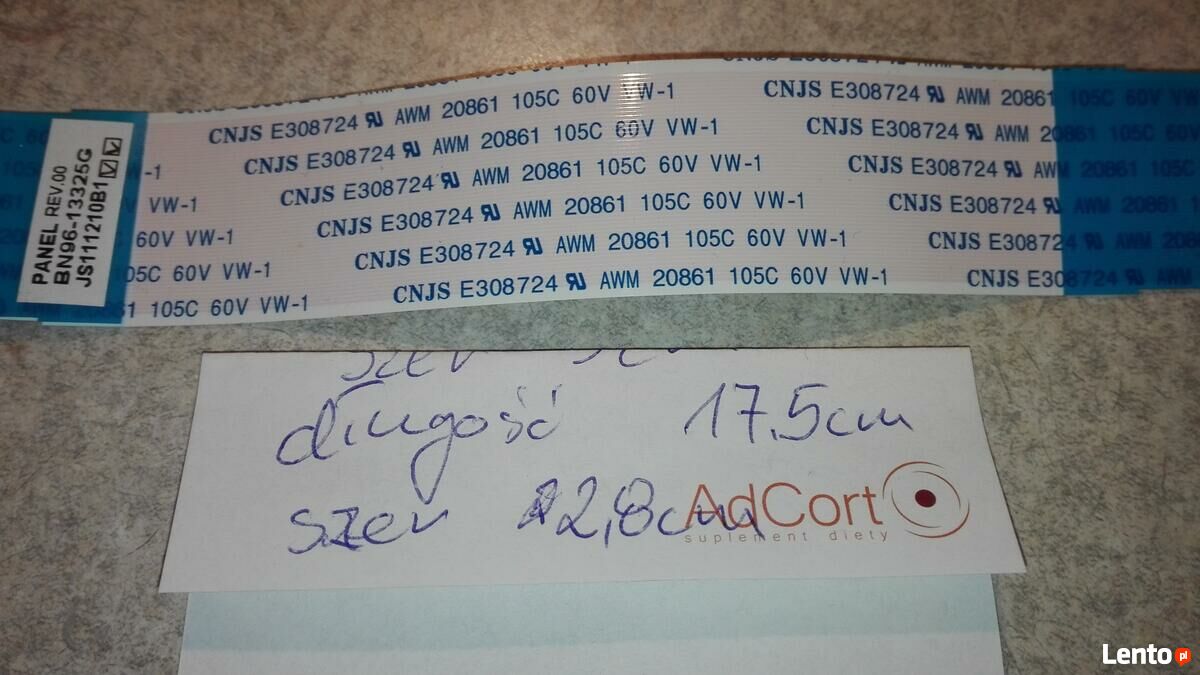 CNJS E308724 AWM 20861 105C 60V VW-1 CNJS E308724 AWM 20861 105C 60V VW-1
CNJS E308724 AWM 20861 105C 60V VW-1 CNJS E308724 AWM 20861 105C
-1 CNJS E308724 AWM 20861 105C 60V VW-1 CNJS E308724 AWM 20861 105C
VW-1 CNJS E308724 AWM 20861 105C 60V VW-1 CNJS E308724 AWM 20861
60V VW-1 CNJS E308724 AWM 20861 105C 60V VW-1 CNJS E308724 AWM
105C 60V VW-1 CNJS E308724 AWM 20861 105C 60V VW-1 CNJS E308724
61 105C 60V VW-1
PANEL REV.00
BN96-13325G
JS111210B1
szer
długość 17,5cm
szer 2,8cm
AdCort
suplement diety
Lento pl